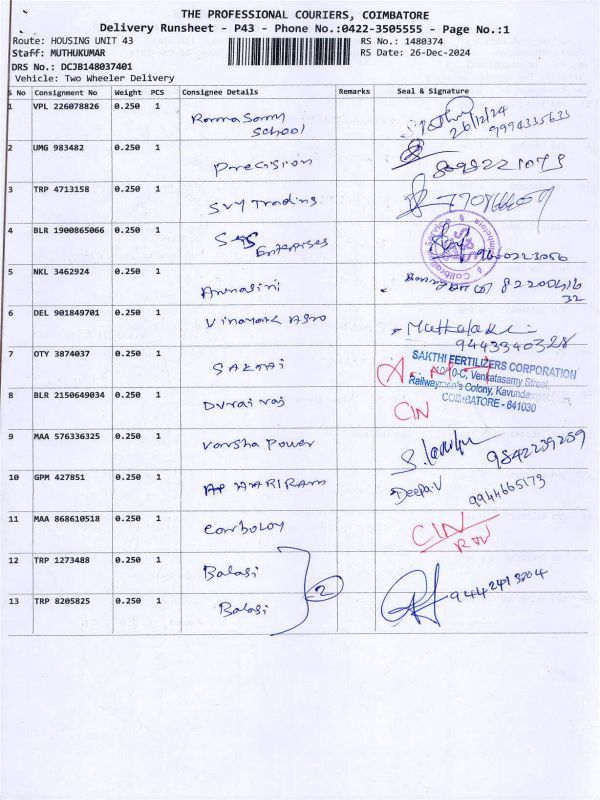 THE PROFESSIONAL COURIERS, COIMBATORE
Delivery Runsheet - P43 - Phone No.:0422-3505555 - Page No.:1
Route: HOUSING UNIT 43 RS No.: 1480374
Staff: MUTHUKUMAR RS Date: 26-Dec-2024
DRS No.: DCJB148037401
Vehicle: Two Wheeler Delivery
S No Consignment No Weight PCS Consignee Details Remarks Seal & Signature
1 VPL 226078826 0.250 1 School 26/12/24 9994335633
2 UMG 983482 0.250 1 Precision
3 TRP 4713158 0.250 1 Trading
4 BLR 1900865066 0.250 1
5 NKL 3462924 0.250 1 32
6 DEL 901849701 0.250 1 9443340328
7 OTY 3874037 0.250 1 SAKTHI FERTILIZERS CORPORATION
Venkatasamy Street,
Railwaymen's Colony,
COIMBATORE - 641030
8 BLR 2150649034 0.250 1 Durai raj CIN
9 MAA 576336325 0.250 1 Varsha Power 9842239259
10 GPM 427851 0.250 1 HARIRAM Deepa.V 9944665173
11 MAA 868610518 0.250 1 CIN
12 TRP 1273488 0.250 1 Balaji
2
13 TRP 8205825 0.250 1 Balaji 9442413204